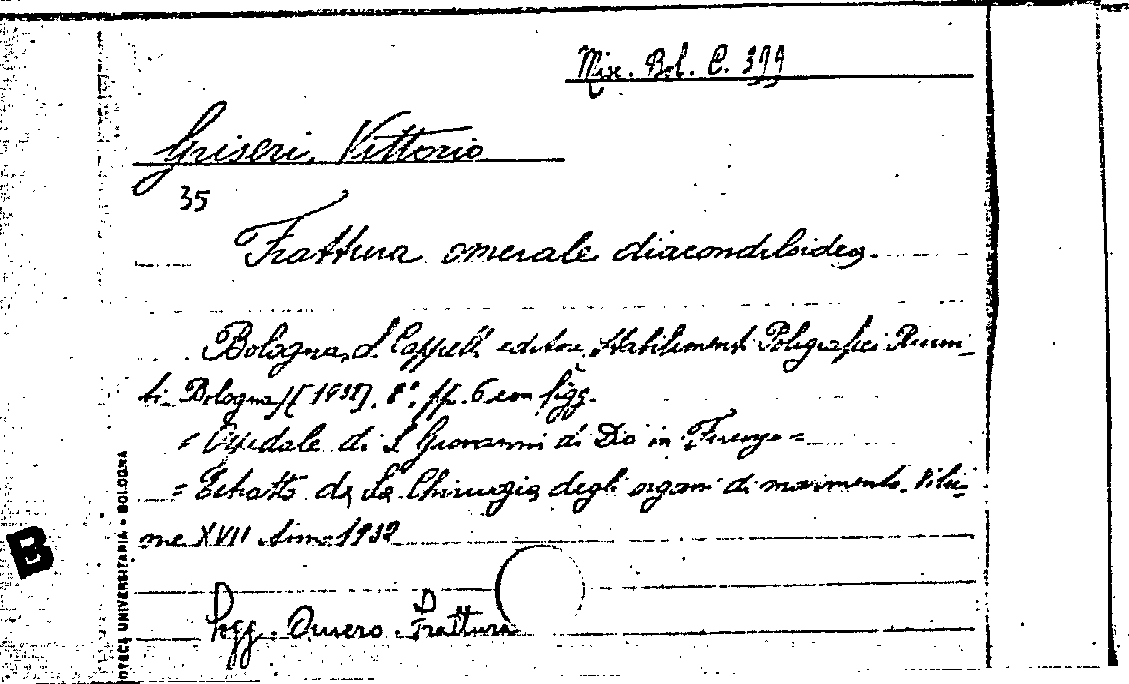 Misc. Bol. C. 399
Griseri, Vittorio
35
Frattura omerale diacondiloidea.
Bologna, L. Cappelli editore, Stabilimenti Poligrafici Riuni-
ti Bologna, [1932]. 8°, pp. 6 con figg.
= Ospedale di S. Giovanni di Dio in Firenze =
= Estratto da La Chirurgia degli organi di movimento. Volu-
me XVII Anno 1932
Sogg. Omero. Frattura
OTECA UNIVERSITARIA - BOLOGNA
B